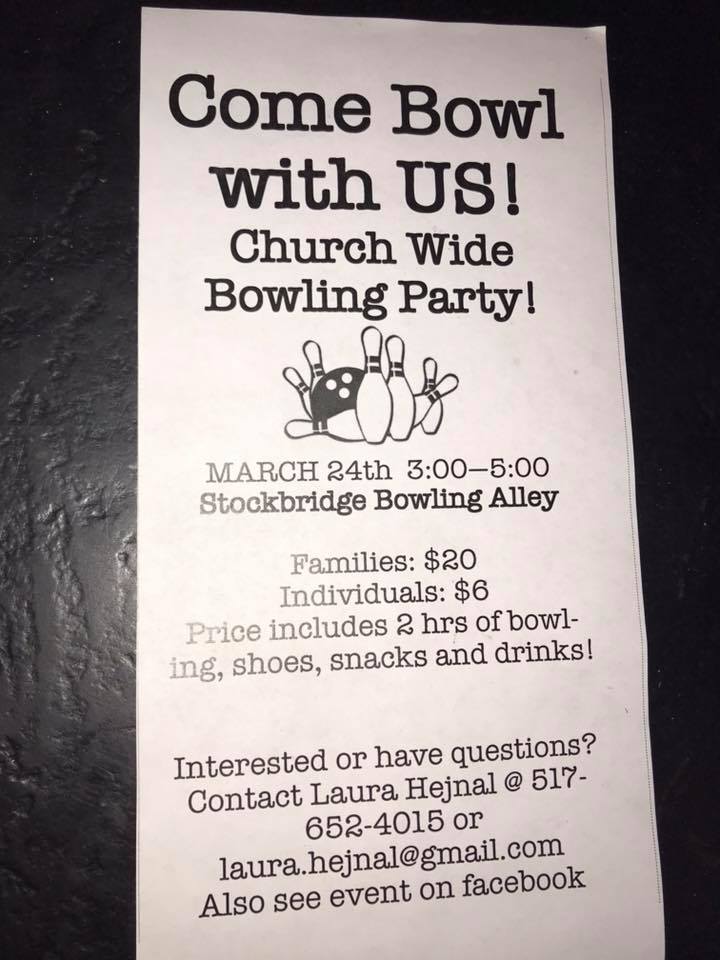 Come Bowl
with US!
Church Wide
Bowling Party!
MARCH 24th 3:00—5:00
Stockbridge Bowling Alley
Families: $20
Individuals: $6
Price includes 2 hrs of bowl-
ing, shoes, snacks and drinks!
Interested or have questions?
Contact Laura Hejnal @ 517-
652-4015 or
laura.hejnal@gmail.com
Also see event on facebook